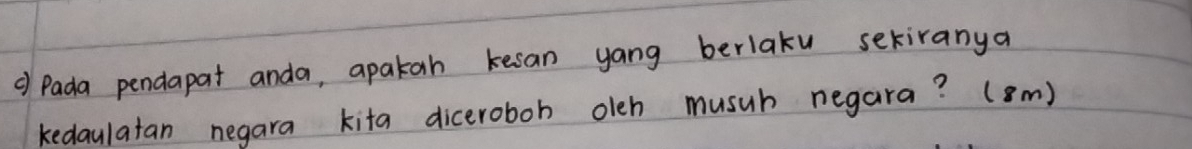 c) Pada pendapat anda, apakah kesan yang berlaku sekiranya
kedaulatan negara kita diceroboh oleh musuh negara? (8m)